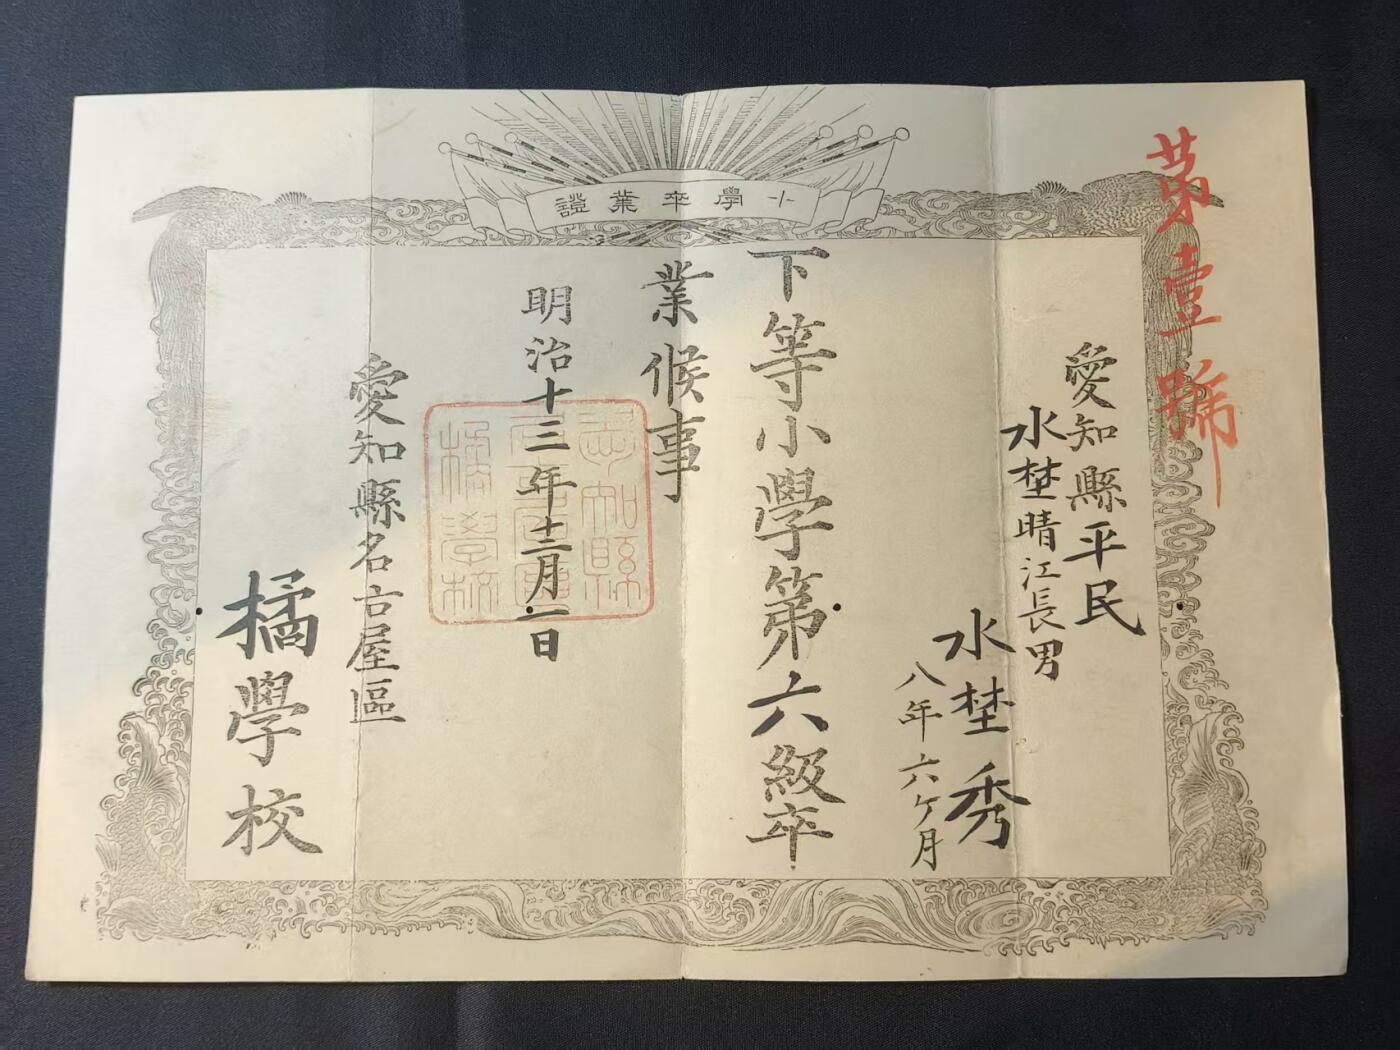 小學卒業證
苐壹號
愛知縣平民
水埜晴江長男
水埜秀
八年六ヶ月
下等小學第六級卒
業候事
明治十三年十二月一日
愛知縣名古屋區
橘學校
愛知縣
橘學校